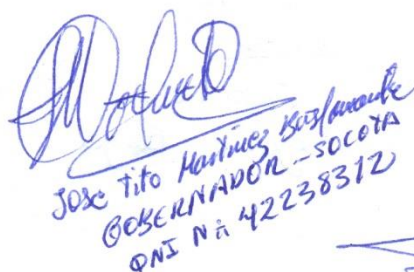 José Tito Martinez Bustamante
GOBERNADOR - SOCOTA
DNI Nº 42238312